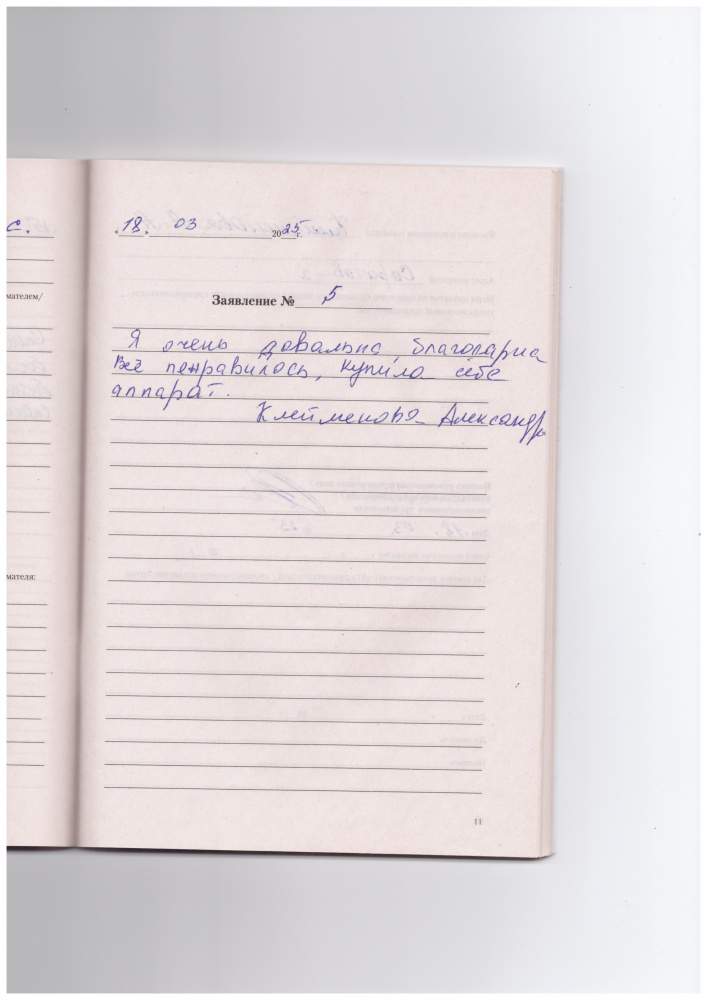 с.
.18. 03 2025 г.
мателем/
Заявление № 5
Я очень довальна, благодарна
Всё пенравилось, купила себе
аппарат.
Клейменова Александр
мателя:
11